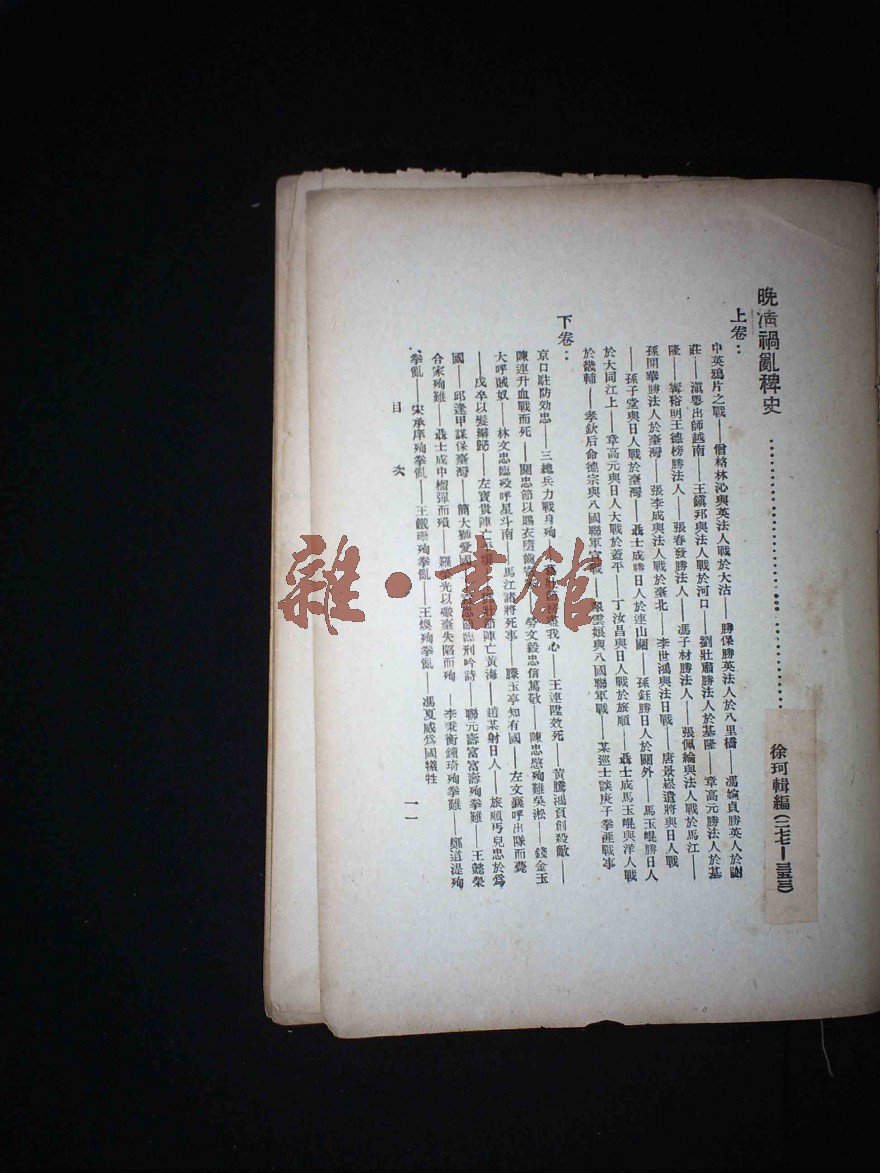 晚清禍亂稗史
徐珂輯編(二七七—三五三)
上卷：
中英鴉片之戰——僧格林沁與英法人戰於大沽——勝保勝英法人於八里橋——馮婉貞勝英人於謝
莊——滇粵出師越南——王鎮邦與法人戰於河口——劉壯肅勝法人於基隆——章高元勝法人於基
隆——寗裕明王德榜勝法人——張春發勝法人——馮子材勝法人——張佩綸與法人戰於馬江——
孫開華勝法人於臺灣——張李成與法人戰於臺北——李世鴻與法日戰——唐景崧遣將與日人戰
——孫子堂與日人戰於臺灣——聶士成勝日人於連山關——孫鈺勝日人於關外——馬玉崐勝日人
於大同江上——章高元與日人大戰於蓋平——丁汝昌與日人戰於旅順——聶士成馬玉崐與洋人戰
於畿輔——孝欽后命德宗與八國聯軍宣戰——翠雲娘與八國聯軍戰——某巡士談庚子拳匪戰事
下卷：
京口駐防効忠——三總兵力戰身殉——我心——王連陞效死——黃騰鴻負創殺敵——
陳連升血戰而死——關忠節以賜衣墮齒寄——勞文毅忠信篤敬——陳忠愍殉難吳淞——錢金玉
大呼賊奴——林文忠臨歿呼星斗南——馬江諸將死事——滕玉亭知有國——左文襄呼出隊而薨
——戍卒以髮辮歸——左寶貴陣亡平壤——壯節陣亡黃海——趙某射日人——旅順丐兒忠於爲
國——邱逢甲謀保臺灣——簡大獅愛國——臨刑吟詩——聯元壽富富壽殉拳難——王懿榮
合家殉難——聶士成中榴彈而殞——羅榮光以礮臺失陷而殉——李秉衡鍾琦殉拳難——鄭道湜殉
拳亂——宋承庠殉拳亂——王鐵珊殉拳亂——王煥殉拳亂——馮夏威爲國犧牲
目次
一一
雜·書館